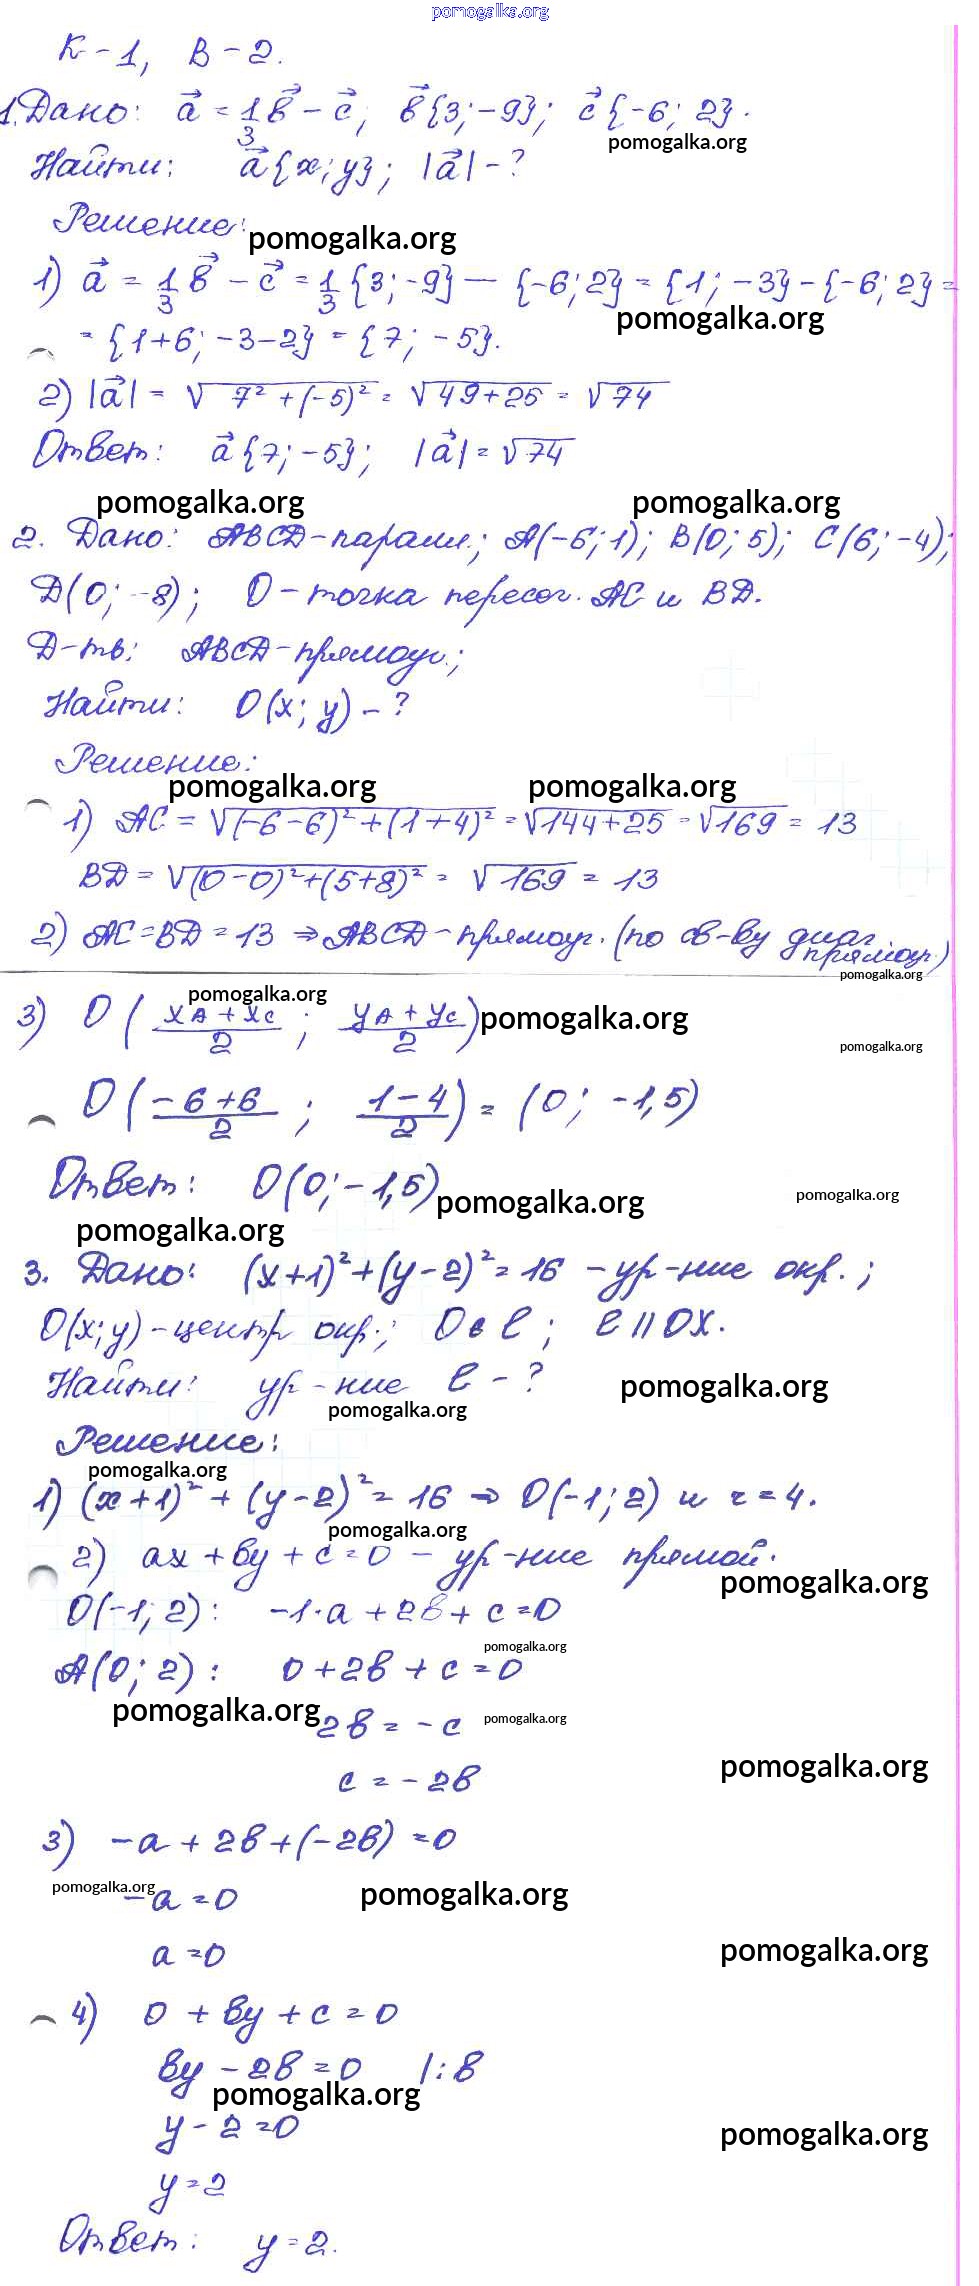 pomogalka.org
К-1, В-2.
1. Дано: a⃗ = 1/3 b⃗ - c⃗; b⃗{3; -9}; c⃗{-6; 2}.
pomogalka.org
Найти: a⃗{x; y}; |a⃗| - ?
Решение:
pomogalka.org
1) a⃗ = 1/3 b⃗ - c⃗ = 1/3 {3; -9} - {-6; 2} = {1; -3} - {-6; 2} =
pomogalka.org
= {1+6; -3-2} = {7; -5}.
2) |a⃗| = √(7² + (-5)²) = √(49+25) = √74
Ответ: a⃗{7; -5}; |a⃗| = √74
pomogalka.org pomogalka.org
2. Дано: ABCD-паралл.; A(-6; 1); B(0; 5); C(6; -4);
D(0; -8); O - точка пересеч. AC и BD.
Д-ть: ABCD-прямоуг.;
Найти: O(x; y) - ?
Решение:
pomogalka.org pomogalka.org
1) AC = √((-6-6)² + (1+4)²) = √(144+25) = √169 = 13
BD = √((0-0)² + (5+8)²) = √169 = 13
2) AC = BD = 13 ⇒ ABCD - прямоуг. (по св-ву диаг.
прямоуг.)
pomogalka.org
pomogalka.org
3) O((xA + xC)/2; (yA + yC)/2)
pomogalka.org
pomogalka.org
O((-6+6)/2; (1-4)/2) = (0; -1,5)
Ответ: O(0; -1,5)
pomogalka.org pomogalka.org
pomogalka.org
3. Дано: (x+1)² + (y-2)² = 16 - ур-ние окр.;
O(x; y) - центр окр.; O∈l; l || OX.
Найти: ур-ние l - ?
pomogalka.org
pomogalka.org
Решение:
pomogalka.org
1) (x+1)² + (y-2)² = 16 ⇒ O(-1; 2) и r = 4.
pomogalka.org
2) ax + by + c = 0 - ур-ние прямой.
pomogalka.org
O(-1; 2): -1·a + 2b + c = 0
pomogalka.org
A(0; 2): 0 + 2b + c = 0
pomogalka.org
2b = -c
pomogalka.org
pomogalka.org
c = -2b
3) -a + 2b + (-2b) = 0
pomogalka.org
-a = 0
pomogalka.org
pomogalka.org
a = 0
4) 0 + by + c = 0
by - 2b = 0 |:b
pomogalka.org
y - 2 = 0
pomogalka.org
y = 2
Ответ: y = 2.